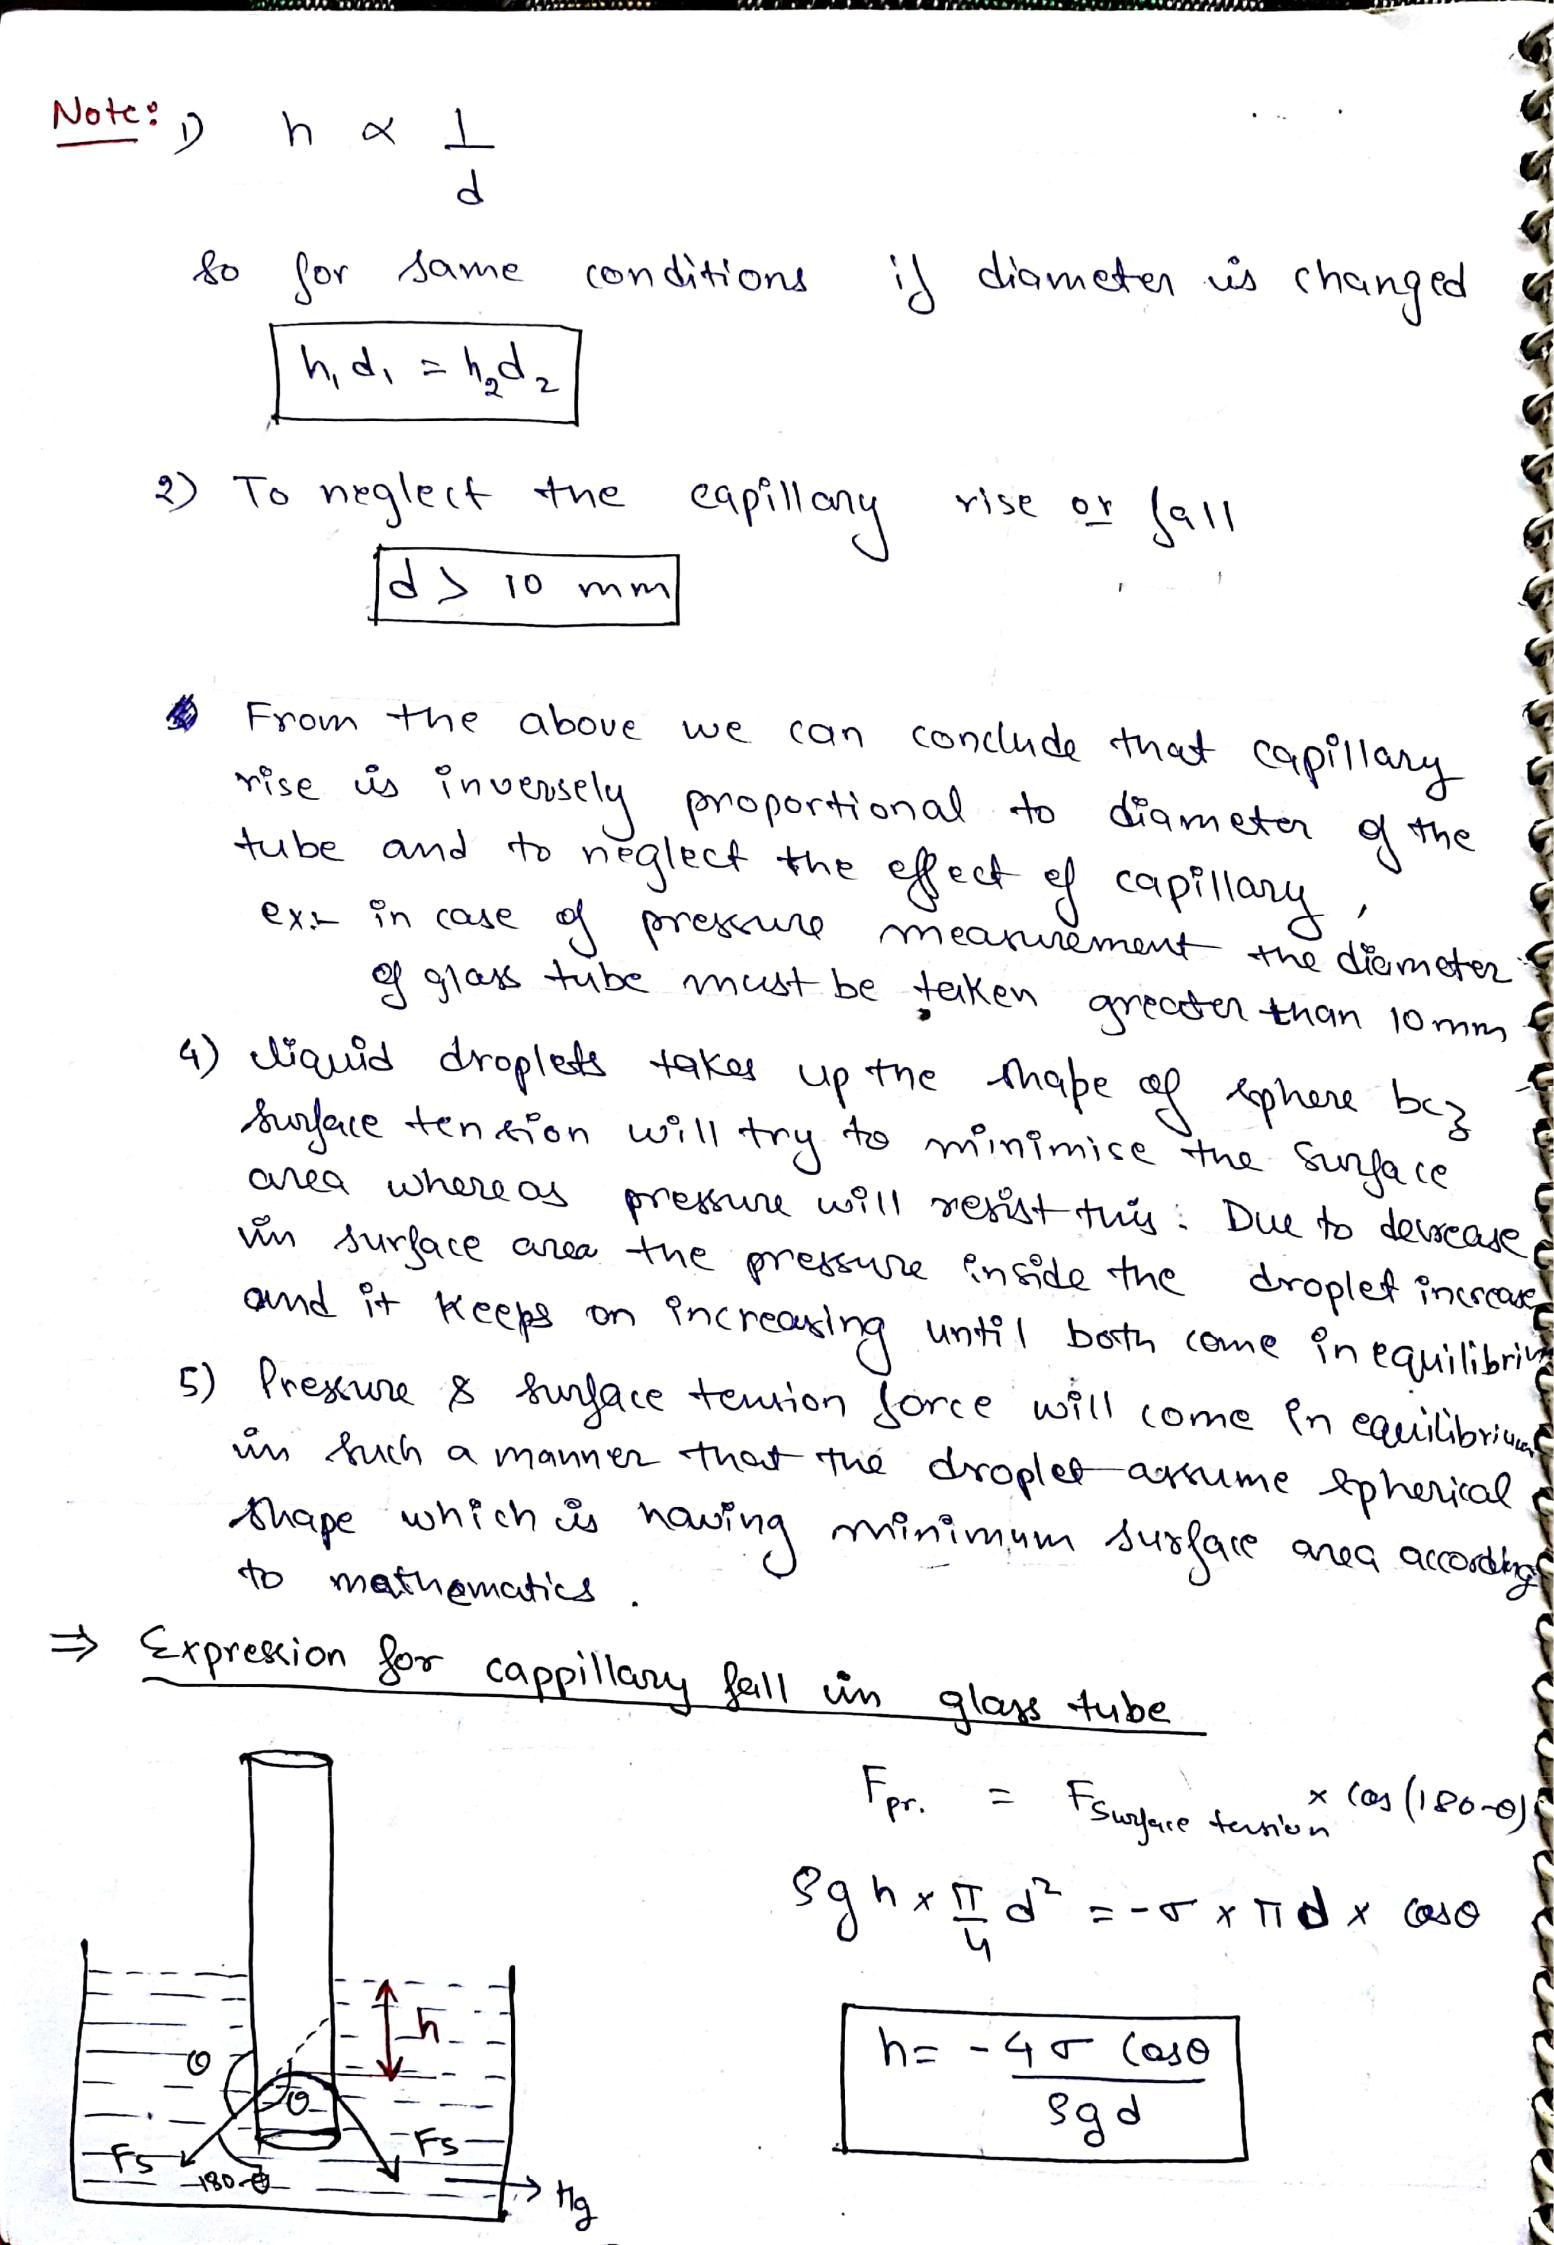 Note: 1) h ∝ 1/d
so for same conditions if diameter is changed
h₁d₁ = h₂d₂
2) To neglect the capillary rise or fall
d > 10 mm
From the above we can conclude that capillary
rise is inversely proportional to diameter of the
tube and to neglect the effect of capillary,
ex:- in case of pressure measurement the diameter
of glass tube must be taken greater than 10mm
4) liquid droplets takes up the shape of sphere bcz
surface tension will try to minimise the surface
area whereas pressure will resist this. Due to decrease
in surface area the pressure inside the droplet increase
and it keeps on increasing until both come in equilibrium
5) Pressure & surface tension force will come in equilibrium
in such a manner that the droplet assume spherical
shape which is having minimum surface area according
to mathematics.
⇒ Expression for cappillary fall in glass tube
F pr. = F surface tension × cos(180-θ)
ρgh × π/4 d² = -σ × πd × cosθ
h = -4σ cosθ / ρgd
h
θ
θ
Fs
Fs
180-θ
Hg